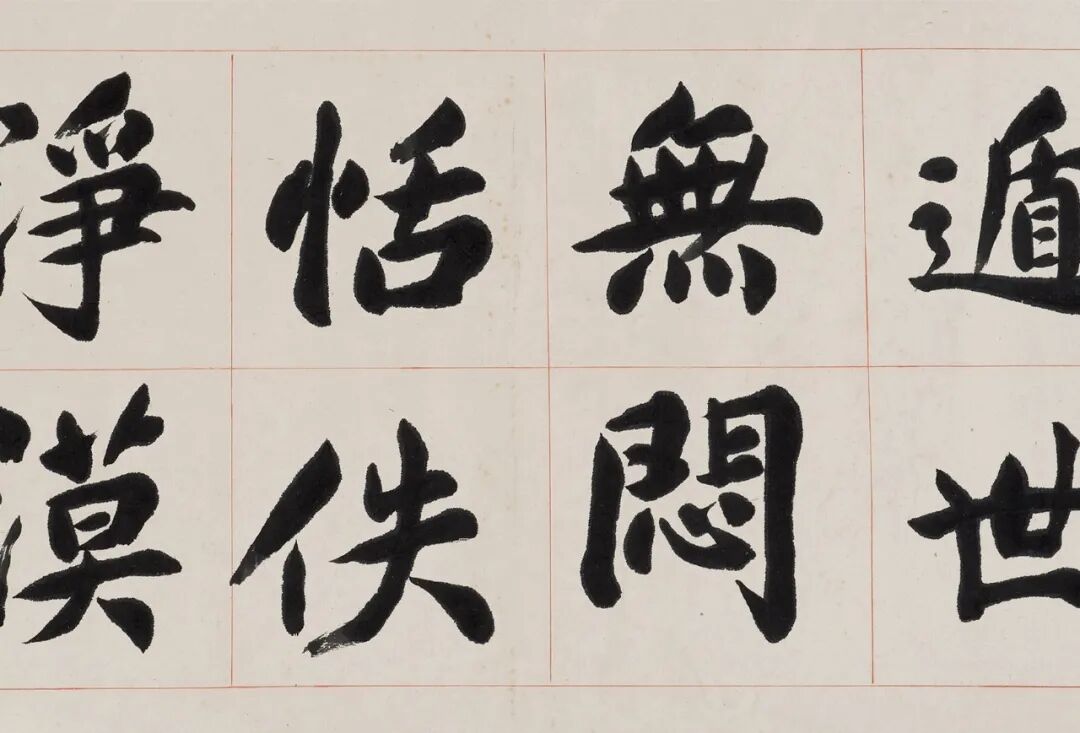 遁世
無悶
恬佚
淨漠